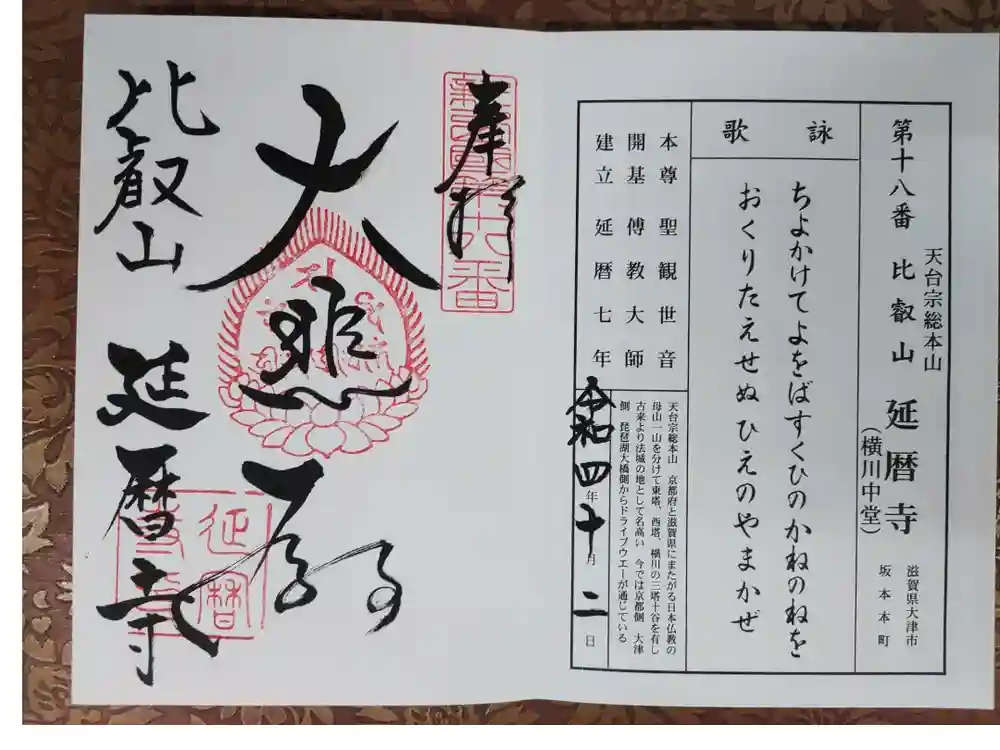 天台宗総本山
第十八番 比叡山 延暦寺
(横川中堂)
滋賀県大津市
坂本本町
詠歌
ちよかけてよをばすくひのかねのねを
おくりたえせぬひえのやまかぜ
本尊 聖観世音
開基 傳教大師
建立 延暦七年
天台宗総本山 京都府と滋賀県にまたがる日本仏教の
母山一山を分けて東塔、西塔、横川の三塔十谷を有し
古来より法城の地として名高い 今では京都側 大津
側 琵琶湖大橋側からドライブウエーが通じている
令和四年十月二日
奉拝
大悲殿
比叡山
延暦寺
新西国第十八番
延暦